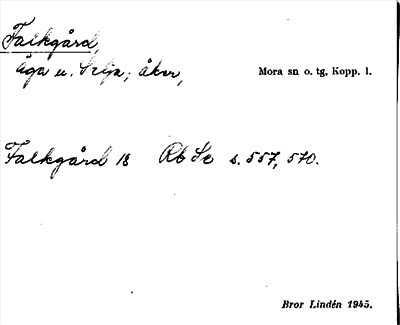 Falkgård,
äga u. Selja; åker, Mora sn o. tg, Kopp. l.
Falkgård 18 Rb Se s. 557, 570.
Bror Lindén 1945.